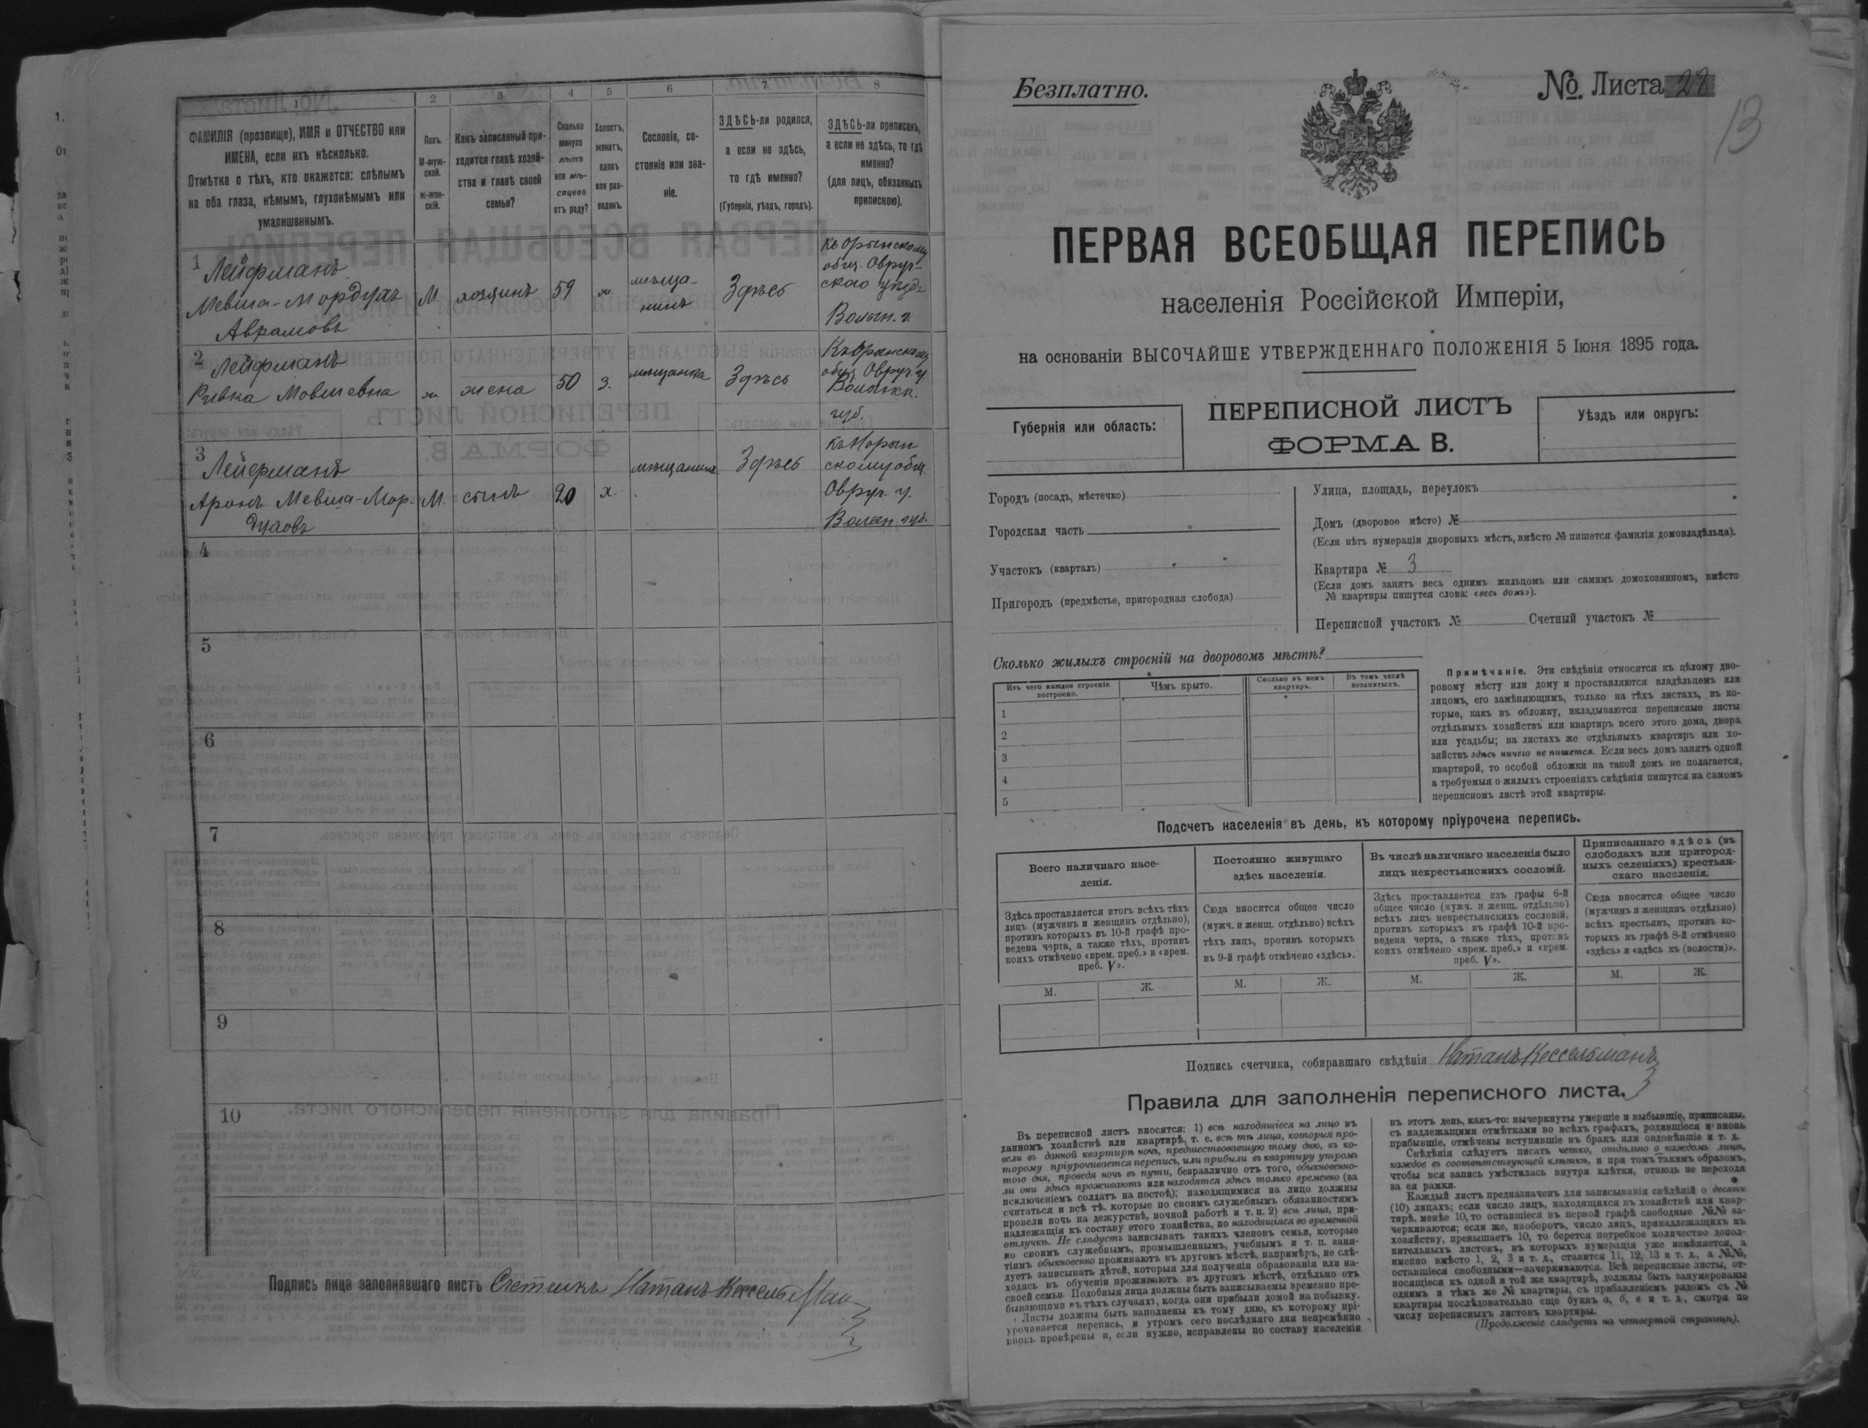 1
2
3
4
5
6
7
8
ФАМИЛІЯ (прозвище), ИМЯ и ОТЧЕСТВО или
ИМЕНА, если ихъ нѣсколько.
Отмѣтка о тѣхъ, кто окажется: слѣпымъ
на оба глаза, нѣмымъ, глухонѣмымъ или
умалишеннымъ.
Полъ.
М-муж-
ской.
ж-жен-
скій.
Какъ записанный при-
ходится главѣ хозяй-
ства и главѣ своей
семьи?
Сколько
минуло
лѣтъ
или мѣ-
сяцевъ
отъ роду?
Холостъ,
женатъ,
вдовъ
или раз-
веденъ.
Сословіе, со-
стояніе или зва-
ніе.
ЗДѢСЬ-ли родился,
а если не здѣсь,
то гдѣ именно?
(Губернія, уѣздъ, городъ).
ЗДѢСЬ-ли приписанъ,
а если не здѣсь, то гдѣ
именно?
(для лицъ, обязанныхъ
припискою).
1
Лейфманъ
Мевша-Мордухъ
Аврамовъ
М
хозяинъ
59
ж.
мѣща-
нинъ
Здѣсь
общ. Овруч-
скаго уѣзда
Волын. г.
2
Лейфманъ
Ривка Мовшевна
ж.
жена
50
з.
мѣщанка
Здѣсь
общ. Овруч. у.
губ.
3
Лейфманъ
Аронъ Мевша-Мор-
духовъ
М.
сынъ
20
х.
мѣщанинъ
Здѣсь
къ Норын-
скому общ.
Овруч. у.
Волын. губ.
4
5
6
7
8
9
10
Подпись лица заполнявшаго листъ Счетчикъ Натанъ Кессельман
Безплатно.
№ Листа 28
13
ПЕРВАЯ ВСЕОБЩАЯ ПЕРЕПИСЬ
населенія Россійской Имперіи,
на основаніи ВЫСОЧАЙШЕ УТВЕРЖДЕННАГО ПОЛОЖЕНІЯ 5 Іюня 1895 года.
Губернія или область:
ПЕРЕПИСНОЙ ЛИСТЪ
ФОРМА В.
Уѣздъ или округъ:
Городъ (посадъ, мѣстечко)
Городская часть
Участокъ (кварталъ)
Пригородъ (предмѣстье, пригородная слобода)
Улица, площадь, переулокъ
Домъ (дворовое мѣсто) №
(Если нѣтъ нумераціи дворовыхъ мѣстъ, вмѣсто № пишется фамилія домовладѣльца).
Квартира № 3
(Если домъ занятъ весь однимъ жильцомъ или самимъ домохозяиномъ, вмѣсто
№ квартиры пишутся слова: «весь домъ»).
Переписной участокъ № Счетный участокъ №
Сколько жилыхъ строеній на дворовомъ мѣстѣ?
Изъ чего каждое строеніе
построено.
Чѣмъ крыто.
Сколько въ немъ
квартиръ.
Въ томъ числѣ
незанятыхъ.
1
2
3
4
5
Примѣчаніе. Эти свѣдѣнія относятся къ цѣлому дво-
ровому мѣсту или дому и проставляются владѣльцемъ или
лицомъ, его замѣняющимъ, только на тѣхъ листахъ, въ ко-
торые, какъ въ обложку, вкладываются переписные листы
отдѣльныхъ хозяйствъ или квартиръ всего этого дома, двора
или усадьбы; на листахъ же отдѣльныхъ квартиръ или хо-
зяйствъ здѣсь ничего не пишется. Если весь домъ занятъ одной
квартирой, то особой обложки на такой домъ не полагается,
а требуемыя о жилыхъ строеніяхъ свѣдѣнія пишутся на самомъ
переписномъ листѣ этой квартиры.
Подсчетъ населенія въ день, къ которому пріурочена перепись.
Всего наличнаго насе-
ленія.
Постоянно живущаго
здѣсь населенія.
Въ числѣ наличнаго населенія было
лицъ некрестьянскихъ сословій.
Приписаннаго здѣсь (въ
слободахъ или пригород-
ныхъ селеніяхъ) крестьян-
скаго населенія.
Здѣсь проставляется итогъ всѣхъ тѣхъ
лицъ (мужчинъ и женщинъ отдѣльно),
противъ которыхъ въ 10-й графѣ про-
ведена черта, а также тѣхъ, противъ
коихъ отмѣчено «врем. преб.» и «врем.
преб. V».
Сюда вносится общее число
(мужч. и женщ. отдѣльно) всѣхъ
тѣхъ лицъ, противъ которыхъ
въ 9-й графѣ отмѣчено «здѣсь».
Здѣсь проставляется изъ графы 6-й
общее число (мужч. и женщ. отдѣльно)
всѣхъ лицъ некрестьянскихъ сословій,
противъ которыхъ въ графѣ 10-й про-
ведена черта, а также тѣхъ, противъ
коихъ отмѣчено «врем. преб.» и «врем.
преб. V».
Сюда вносится общее число
(мужчинъ и женщинъ отдѣльно)
всѣхъ крестьянъ, противъ ко-
торыхъ въ графѣ 8-й отмѣчено
«здѣсь» и «здѣсь къ (волости)».
М.
Ж.
М.
Ж.
М.
Ж.
М.
Ж.
Подпись счетчика, собиравшаго свѣдѣнія Натанъ Кессельманъ
Правила для заполненія переписного листа.
Въ переписной листъ вносятся: 1) всѣ находящіеся на лицо въ
данномъ хозяйствѣ или квартирѣ, т. е. всѣ тѣ лица, которыя про-
вели въ данной квартирѣ ночь, предшествовавшую тому дню, къ ко-
торому пріурочивается перепись, или прибыли въ квартиру утромъ
того дня, проведя ночь въ пути, безразлично отъ того, обыкновенно-
ли они здѣсь проживаютъ или находятся здѣсь только временно (за
исключеніемъ солдатъ на постоѣ); находящимися на лицо должны
считаться и всѣ тѣ, которые по своимъ служебнымъ обязанностямъ
провели ночь на дежурствѣ, ночной работѣ и т. п. 2) всѣ лица, при-
надлежащія къ составу этого хозяйства, но находящіяся во временной
отлучкѣ. Не слѣдуетъ записывать такихъ членовъ семьи, которые
по своимъ служебнымъ, промышленнымъ, учебнымъ и т. п. заня-
тіямъ обыкновенно проживаютъ въ другомъ мѣстѣ, напримѣръ, не слѣ-
дуетъ записывать дѣтей, которыя для полученія образованія или на-
ходясь въ обученіи проживаютъ въ другомъ мѣстѣ, отдѣльно отъ
своей семьи. Подобныя лица должны быть записываемы временно пре-
бывающими въ тѣхъ случаяхъ, когда они прибыли домой на побывку.
Листы должны быть заполнены къ тому дню, къ которому прі-
урочивается перепись, и утромъ сего послѣдняго дня непремѣнно
вновь провѣрены и, если нужно, исправлены по составу населенія
въ этотъ день, какъ-то: вычеркнуты умершіе и выбывшіе, приписаны,
съ надлежащими отмѣтками во всѣхъ графахъ, родившіеся и вновь
прибывшіе, отмѣчены вступившіе въ бракъ или овдовѣвшіе и т. д.
Свѣдѣнія слѣдуетъ писать четко, отдѣльно о каждомъ лицѣ,
каждое въ соотвѣтствующей клѣткѣ, и при томъ такимъ образомъ,
чтобы вся запись умѣстилась внутри клѣтки, отнюдь не переходя
за ея рамки.
Каждый листъ предназначенъ для записыванія свѣдѣній о десяти
(10) лицахъ; если число лицъ, находящихся въ хозяйствѣ или квар-
тирѣ, менѣе 10, то оставшіеся въ первой графѣ свободные №№ за-
черкиваются; если же, наоборотъ, число лицъ, принадлежащихъ къ
хозяйству, превышаетъ 10, то берется потребное количество допол-
нительныхъ листовъ, въ которыхъ нумерація уже измѣняется, а
именно вмѣсто 1, 2, 3 и т. д., ставится 11, 12, 13 и т. д., а №№,
оставшіеся свободными—зачеркиваются. Всѣ переписные листы, от-
носящіеся къ одной и той же квартирѣ, должны быть занумерованы
однимъ и тѣмъ же № квартиры, съ прибавленіемъ рядомъ съ №
квартиры послѣдовательно еще буквъ а, б, в и т. д., смотря по
числу переписныхъ листовъ квартиры.
(Продолженіе слѣдуетъ на четвертой страницѣ).